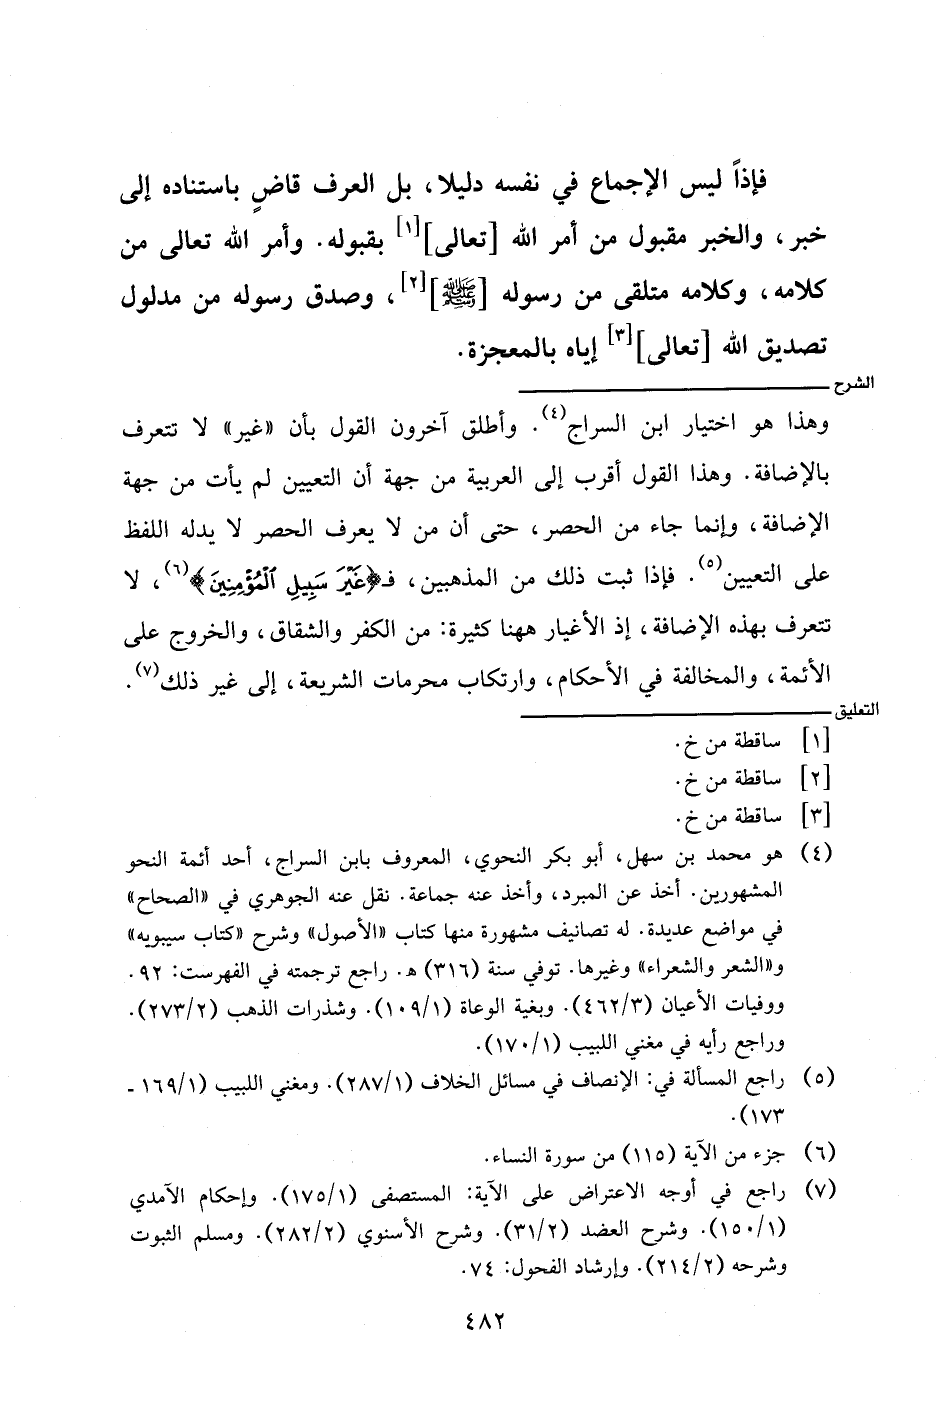 فإذاً ليس الإجماع في نفسه دليلا، بل العرف قاضٍ باستناده إلى
خبر، والخبر مقبول من أمر الله [تعالى][١] بقبوله. وأمر الله تعالى من
كلامه، وكلامه متلقى من رسوله [ﷺ][٢]، وصدق رسوله من مدلول
تصديق الله [تعالى][٣] إياه بالمعجزة.
الشرح
وهذا هو اختيار ابن السراج(٤). وأطلق آخرون القول بأن «غير» لا تتعرف
بالإضافة. وهذا القول أقرب إلى العربية من جهة أن التعيين لم يأت من جهة
الإضافة، وإنما جاء من الحصر، حتى أن من لا يعرف الحصر لا يدله اللفظ
على التعيين(٥). فإذا ثبت ذلك من المذهبين، فـ﴿غَيْرَ سَبِيلِ ٱلْمُؤْمِنِينَ﴾(٦)، لا
تتعرف بهذه الإضافة، إذ الأغيار ههنا كثيرة: من الكفر والشقاق، والخروج على
الأئمة، والمخالفة في الأحكام، وارتكاب محرمات الشريعة، إلى غير ذلك(٧).
التعليق
[١] ساقطة من خ.
[٢] ساقطة من خ.
[٣] ساقطة من خ.
(٤) هو محمد بن سهل، أبو بكر النحوي، المعروف بابن السراج، أحد أئمة النحو
المشهورين. أخذ عن المبرد، وأخذ عنه جماعة. نقل عنه الجوهري في «الصحاح»
في مواضع عديدة. له تصانيف مشهورة منها كتاب «الأصول» وشرح «كتاب سيبويه»
و«الشعر والشعراء» وغيرها. توفي سنة (٣١٦) هـ. راجع ترجمته في الفهرست: ٩٢.
ووفيات الأعيان (٤٦٢/٣). وبغية الوعاة (١٠٩/١). وشذرات الذهب (٢٧٣/٢).
وراجع رأيه في مغني اللبيب (١٧٠/١).
(٥) راجع المسألة في: الإنصاف في مسائل الخلاف (٢٨٧/١). ومغني اللبيب (١٦٩/١ -
١٧٣).
(٦) جزء من الآية (١١٥) من سورة النساء.
(٧) راجع في أوجه الاعتراض على الآية: المستصفى (١٧٥/١). وإحكام الآمدي
(١٥٠/١). وشرح العضد (٣١/٢). وشرح الأسنوي (٢٨٢/٢). ومسلم الثبوت
وشرحه (٢١٤/٢). وإرشاد الفحول: ٧٤.
٤٨٢